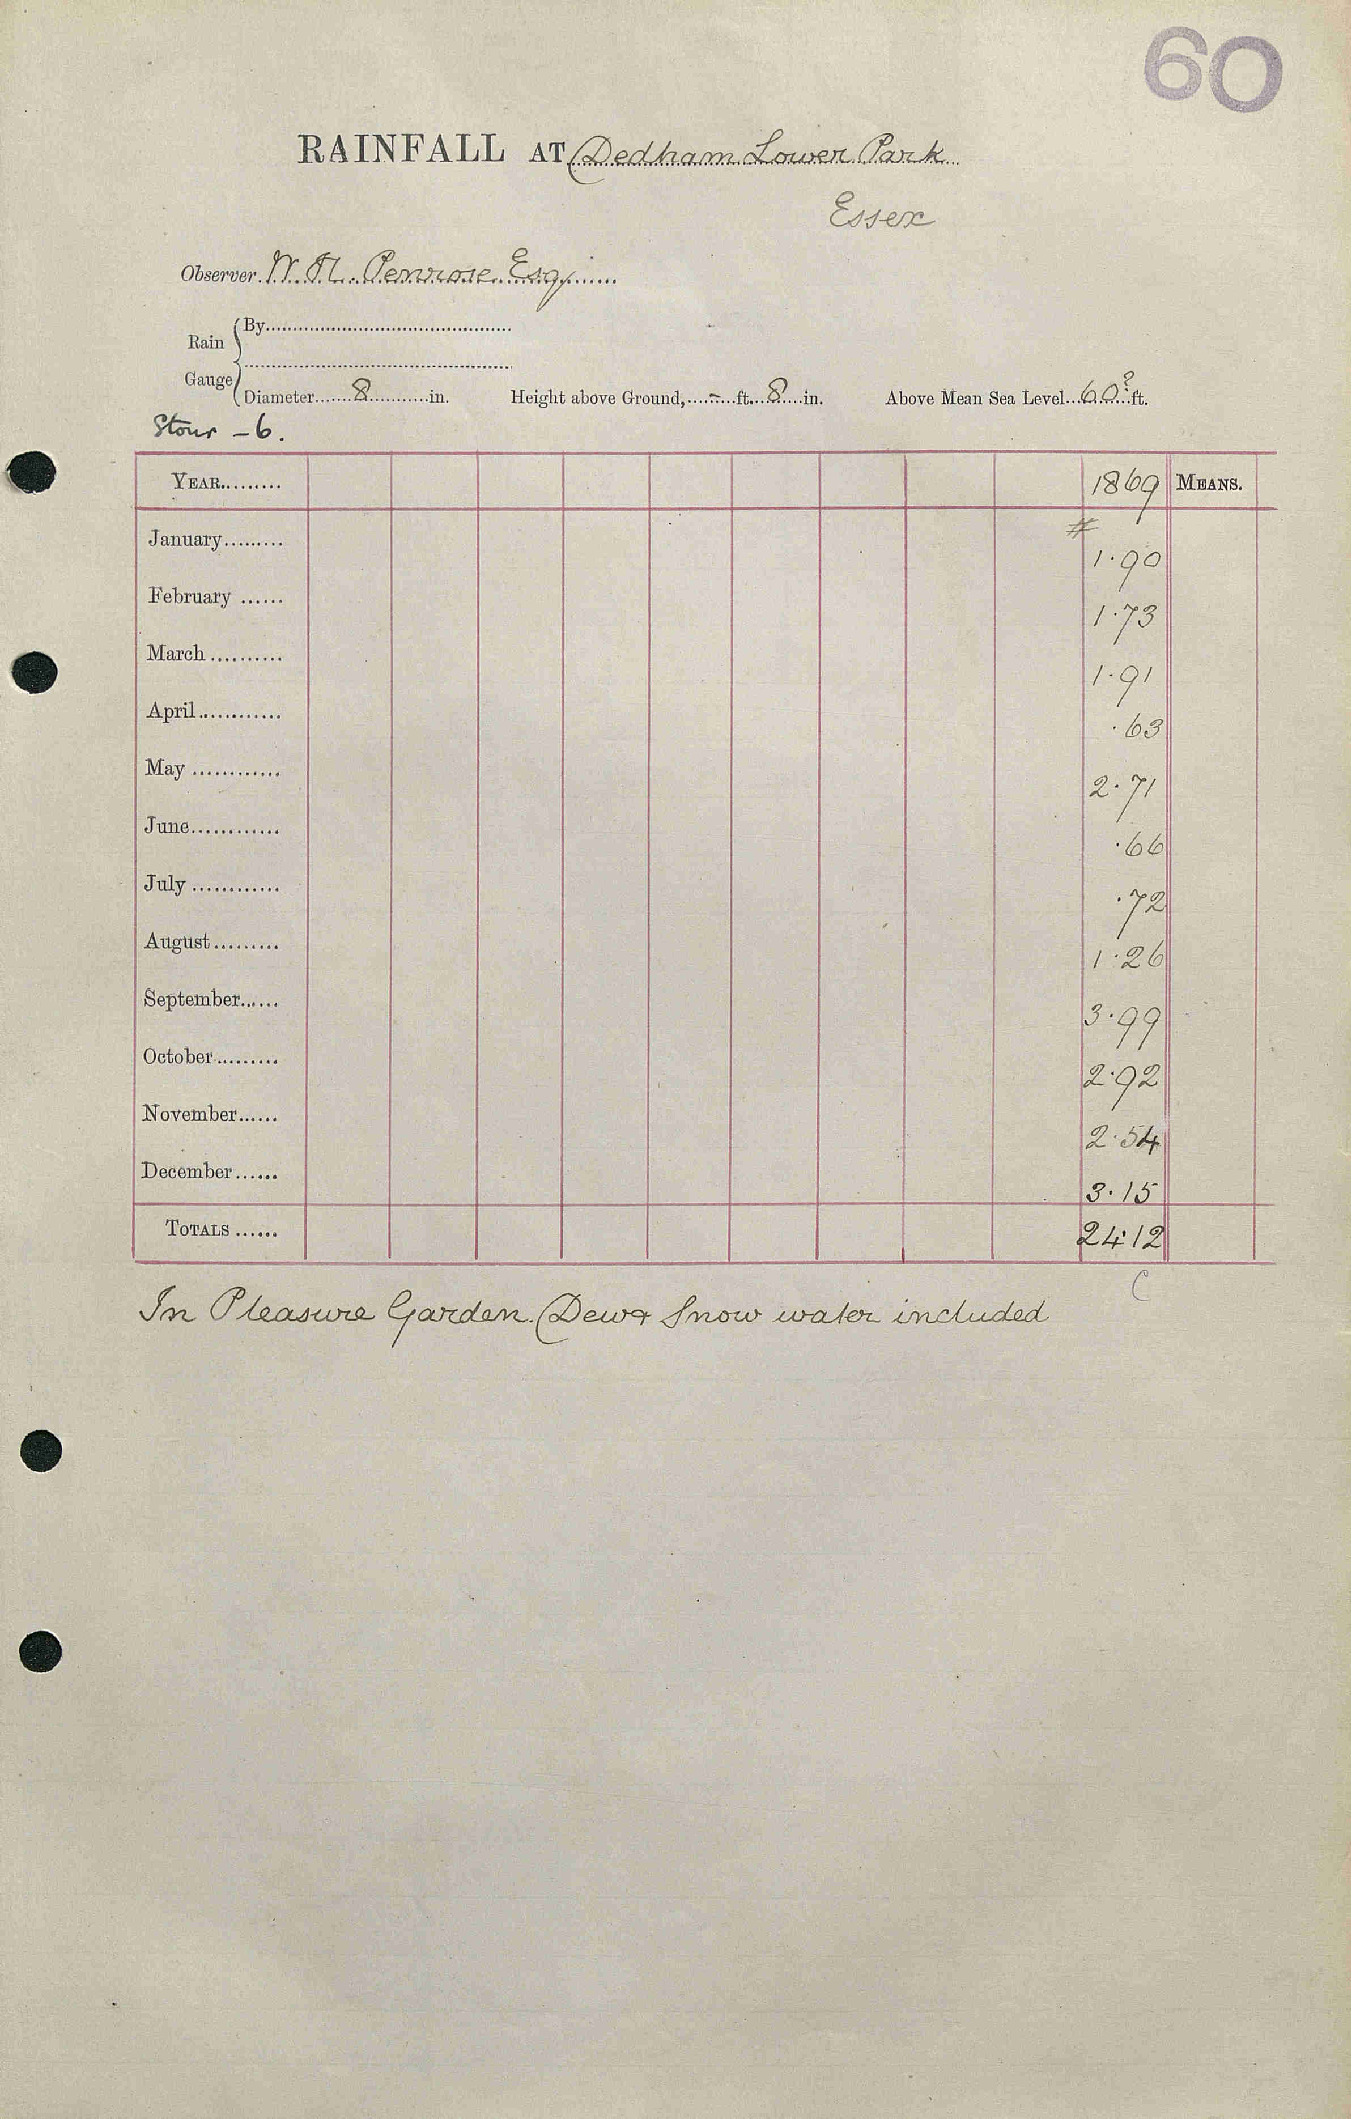 60
RAINFALL AT Dedham Lower Park
Essex
Observer W. H. Penrose Esq
Rain Gauge
By
Diameter 8 in. Height above Ground, - ft. 8 in. Above Mean Sea Level 60? ft.
Stour - 6.
YEAR 1869 MEANS.
#
January 1.90
February 1.73
March 1.91
April .63
May 2.71
June .66
July .72
August 1.26
September 3.99
October 2.92
November 2.54
December 3.15
TOTALS 24.12
C
In Pleasure Garden. Dew & Snow water included